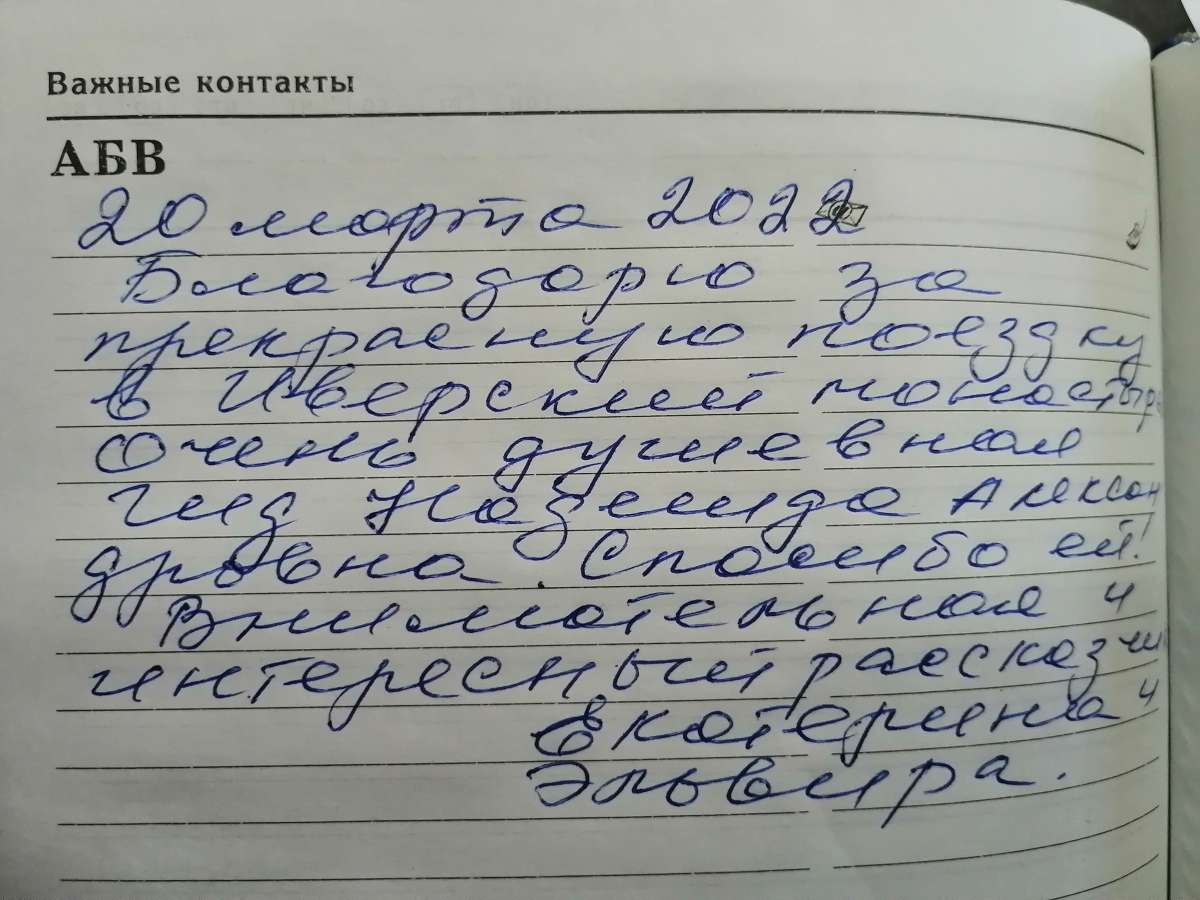 Важные контакты
АБВ
20 марта 2022
Благодарю за
прекрасную поездку
в Иверский монастырь
очень душевная
гид Надежда Алексан
дровна. Спасибо ей!
Внимательная и
интересный рассказчик
Екатерина и
Эльвира.